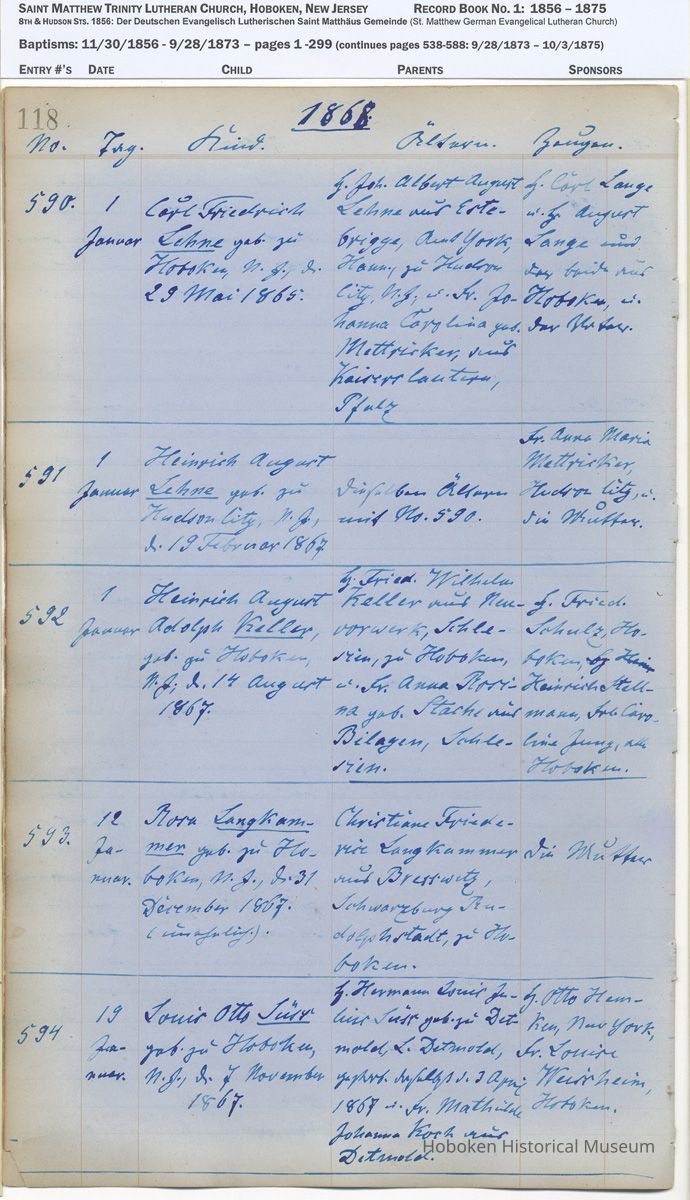 SAINT MATTHEW TRINITY LUTHERAN CHURCH, HOBOKEN, NEW JERSEY RECORD BOOK NO. 1: 1856 – 1875
8TH & HUDSON STS. 1856: Der Deutschen Evangelisch Lutherischen Saint Matthäus Gemeinde (St. Matthew German Evangelical Lutheran Church)
Baptisms: 11/30/1856 - 9/28/1873 – pages 1 -299 (continues pages 538-588: 9/28/1873 – 10/3/1875)
ENTRY #'S DATE CHILD PARENTS SPONSORS
118 1868.
No. Tag. Kind. Ältern. Zeugen.
590.
1
Januar
Carl Friedrich
Lehne geb. zu
Hoboken, N. J., d.
29 Mai 1865.
H. Joh. Albert August
Lehne aus Este-
brügge, Amt York,
Hann., zu Hudson
City, N.J., u. Fr. Jo-
hanna Carolina geb.
Mettricker, aus
Kaiserslautern,
Pfalz
H. Carl Lange
u. H. August
Lange und
beide aus
Hoboken, u.
der Vater.
591
1
Januar
Heinrich August
Lehne geb. zu
Hudson City, N. J.,
d. 19 Februar 1867
Dieselben Ältern
mit No. 590.
Fr. Anna Maria
Mettricker,
Hudson City, u.
die Mutter.
592
1
Januar
Heinrich August
Adolph Keller,
geb. zu Hoboken,
N. J., d. 14 August
1867.
H. Fried. Wilhelm
Keller aus Neu-
vorwerk, Schle-
sien, zu Hoboken,
u. Fr. Anna Rosi-
na geb. Stache aus
Bilagen, Schle-
sien.
H. Fried.
Schulz, Ho-
boken,
Heinrich Stell-
mann, Caro-
line Jung, alle
Hoboken.
593.
12
Ja-
nuar.
Rosa Langkam-
mer geb. zu Ho-
boken, N. J., d. 31
December 1867.
(unehelich).
Christiane Friede-
rice Langkammer
aus Bresswitz,
Schwarzburg Ru-
dolphstadt, zu Ho-
boken.
Die Mutter
594
19
Ja-
nuar.
Louis Otto Süss
geb. zu Hoboken,
N. J., d. 7 November
1867.
H. Hermann Louis Ju-
lius Süss geb. zu Det-
mold, L. Detmold,
gestorb. daselbst d. 3 April
1867 u. Fr. Mathilde
Johanna Koch aus
Detmold.
H. Otto Ham-
ken, New York,
Fr. Louise
Weissheim,
Hoboken.
Hoboken Historical Museum